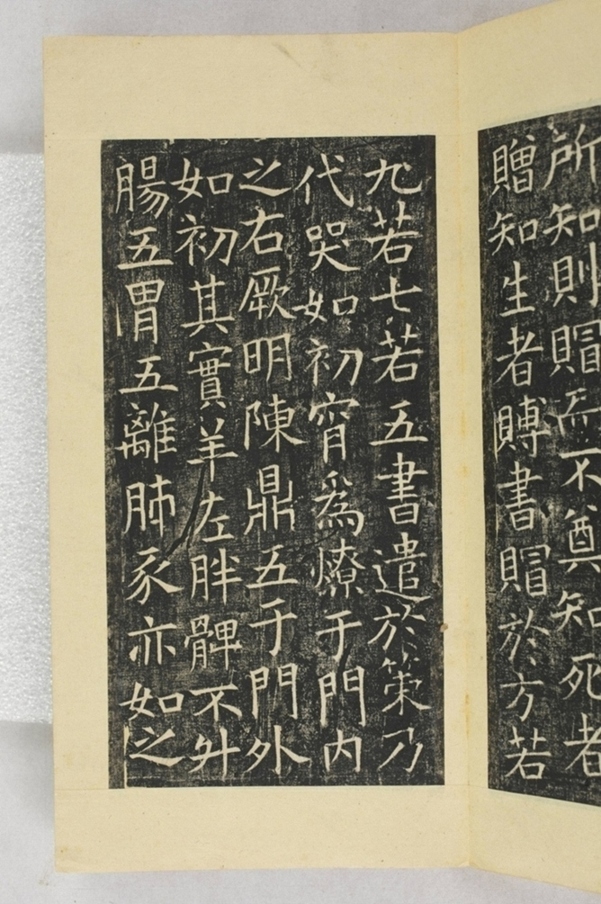 所知則賵而不奠知死者
贈知生者賻書賵於方若
九若七若五書遣於策乃
代哭如初宵爲燎于門内
之右厥明陳鼎五于門外
如初其實羊左胖髀不升
腸五胃五離肺豕亦如之